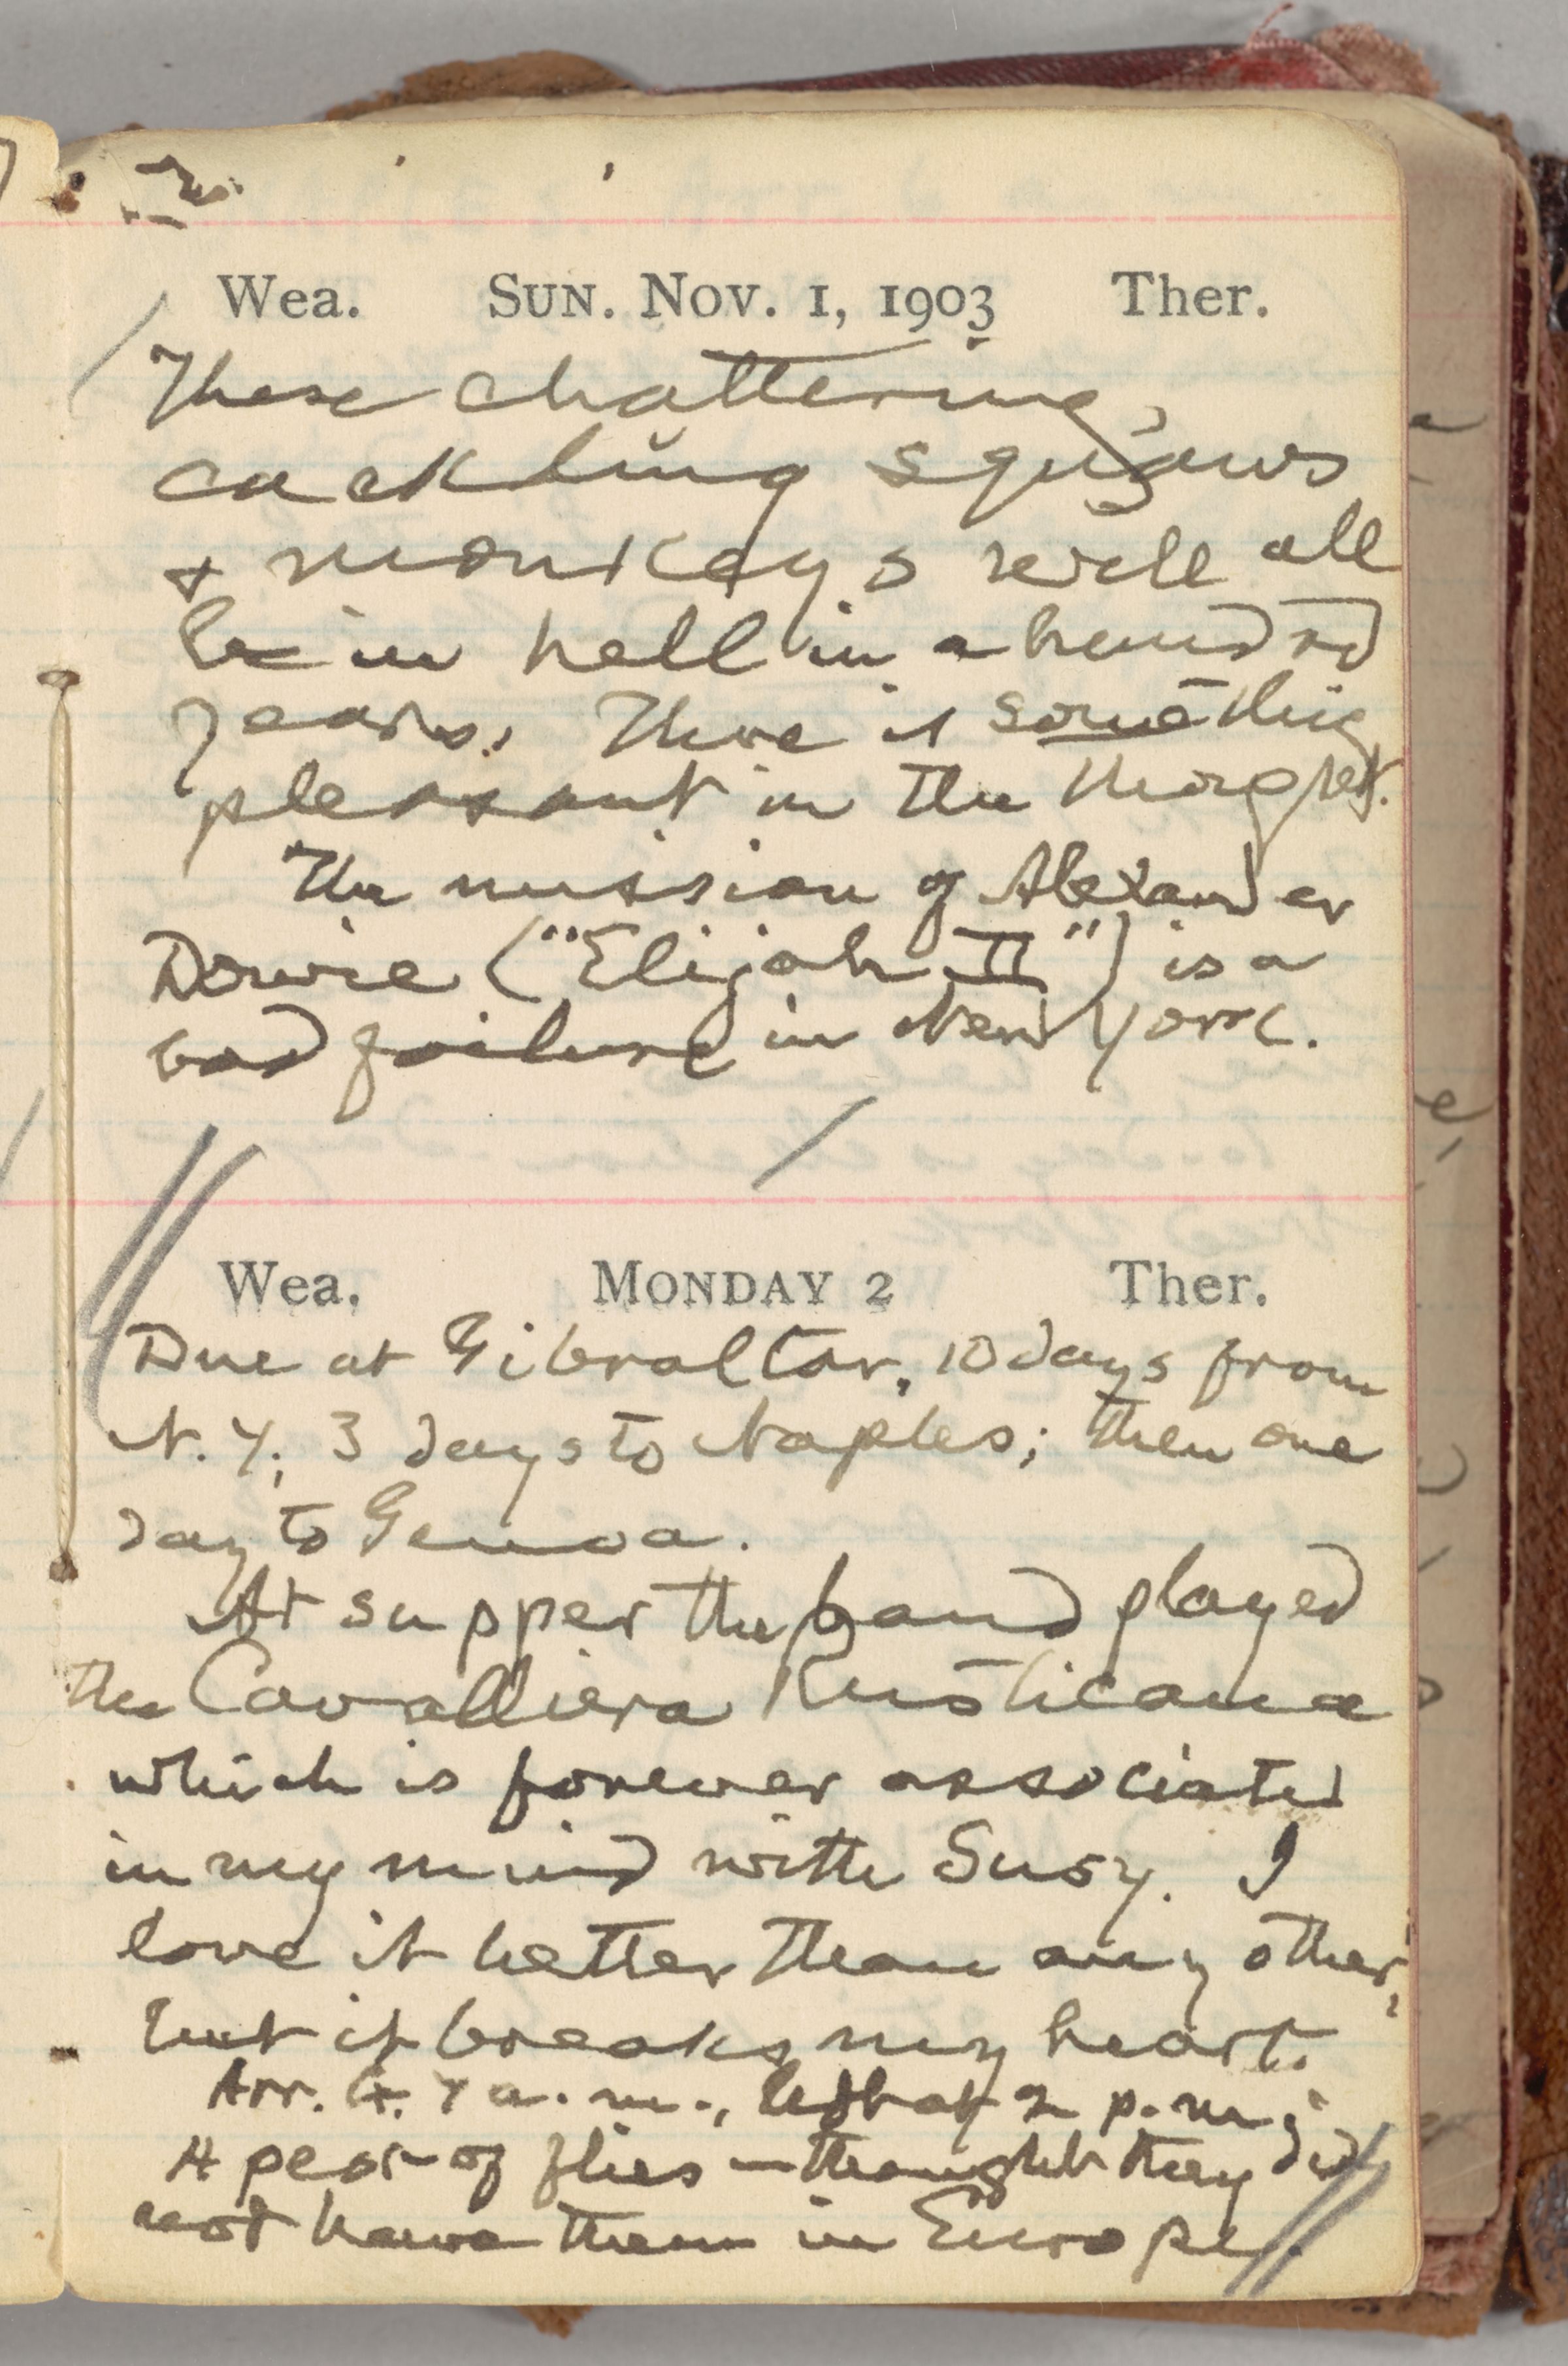 Wea. SUN. NOV. 1, 1903 Ther.
These chattering,
cackling squaws
& monkeys will all
be in hell in a hundred
years. There is something
pleasant in the thought.
The mission of Alexander
Dowie ("Elijah II") is a
bad failure in New York.
Wea. MONDAY 2 Ther.
Due at Gibraltar, 10 days from
N. Y.; 3 days to Naples; then one
day to Genoa.
At supper the band played
the Cavalliera Rusticana
which is forever associated
in my mind with Susy. I
love it better than any other,
but it breaks my heart.
Arr. G. 7 a. m., left at 2 p. m.;
A peck of flies — thought they did
not have them in Europe.